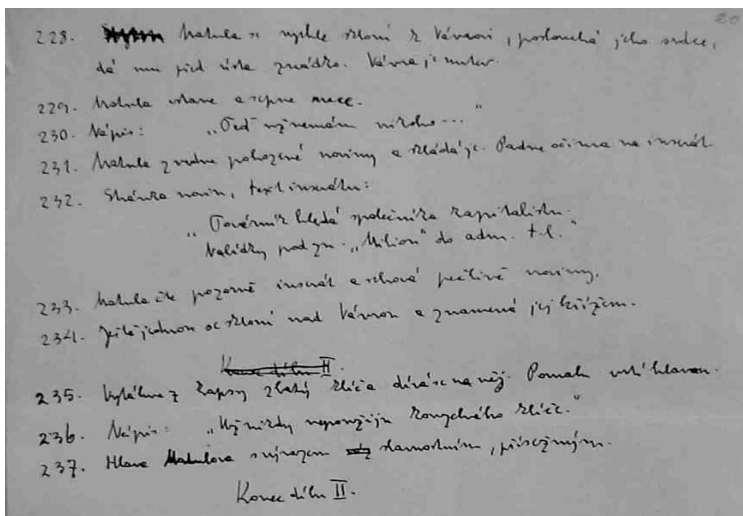 20
228. Matula se rychle skloní k Vávrovi, poslouchá jeho srdce,
dá mu před ústa zrcátko. Vávra je mrtev.
229. Matula vstane a sepne ruce.
230. Nápis: „Teď už nemám nikoho..."
231. Matula zvedne pohozené noviny a skládá je. Padne očima na inserát.
232. Stránka novin, text inserátu:
„Továrník hledá společníka kapitalistu.
Nabídky pod zn. „Milion" do adm. t.l."
233. Matula čte pozorně inserát a schová pečlivě noviny.
234. Ještě jednou se skloní nad Vávrou a znamená jej křížem.
Konec dílu II.
235. Vytáhne z kapsy zlatý klíč a dívá se na něj. Pomalu vrtí hlavou.
236. Nápis: „Už nikdy nepoužiju kouzelného klíče."
237. Hlava Matulova s výrazem slavnostním, přísežným.
Konec dílu II.